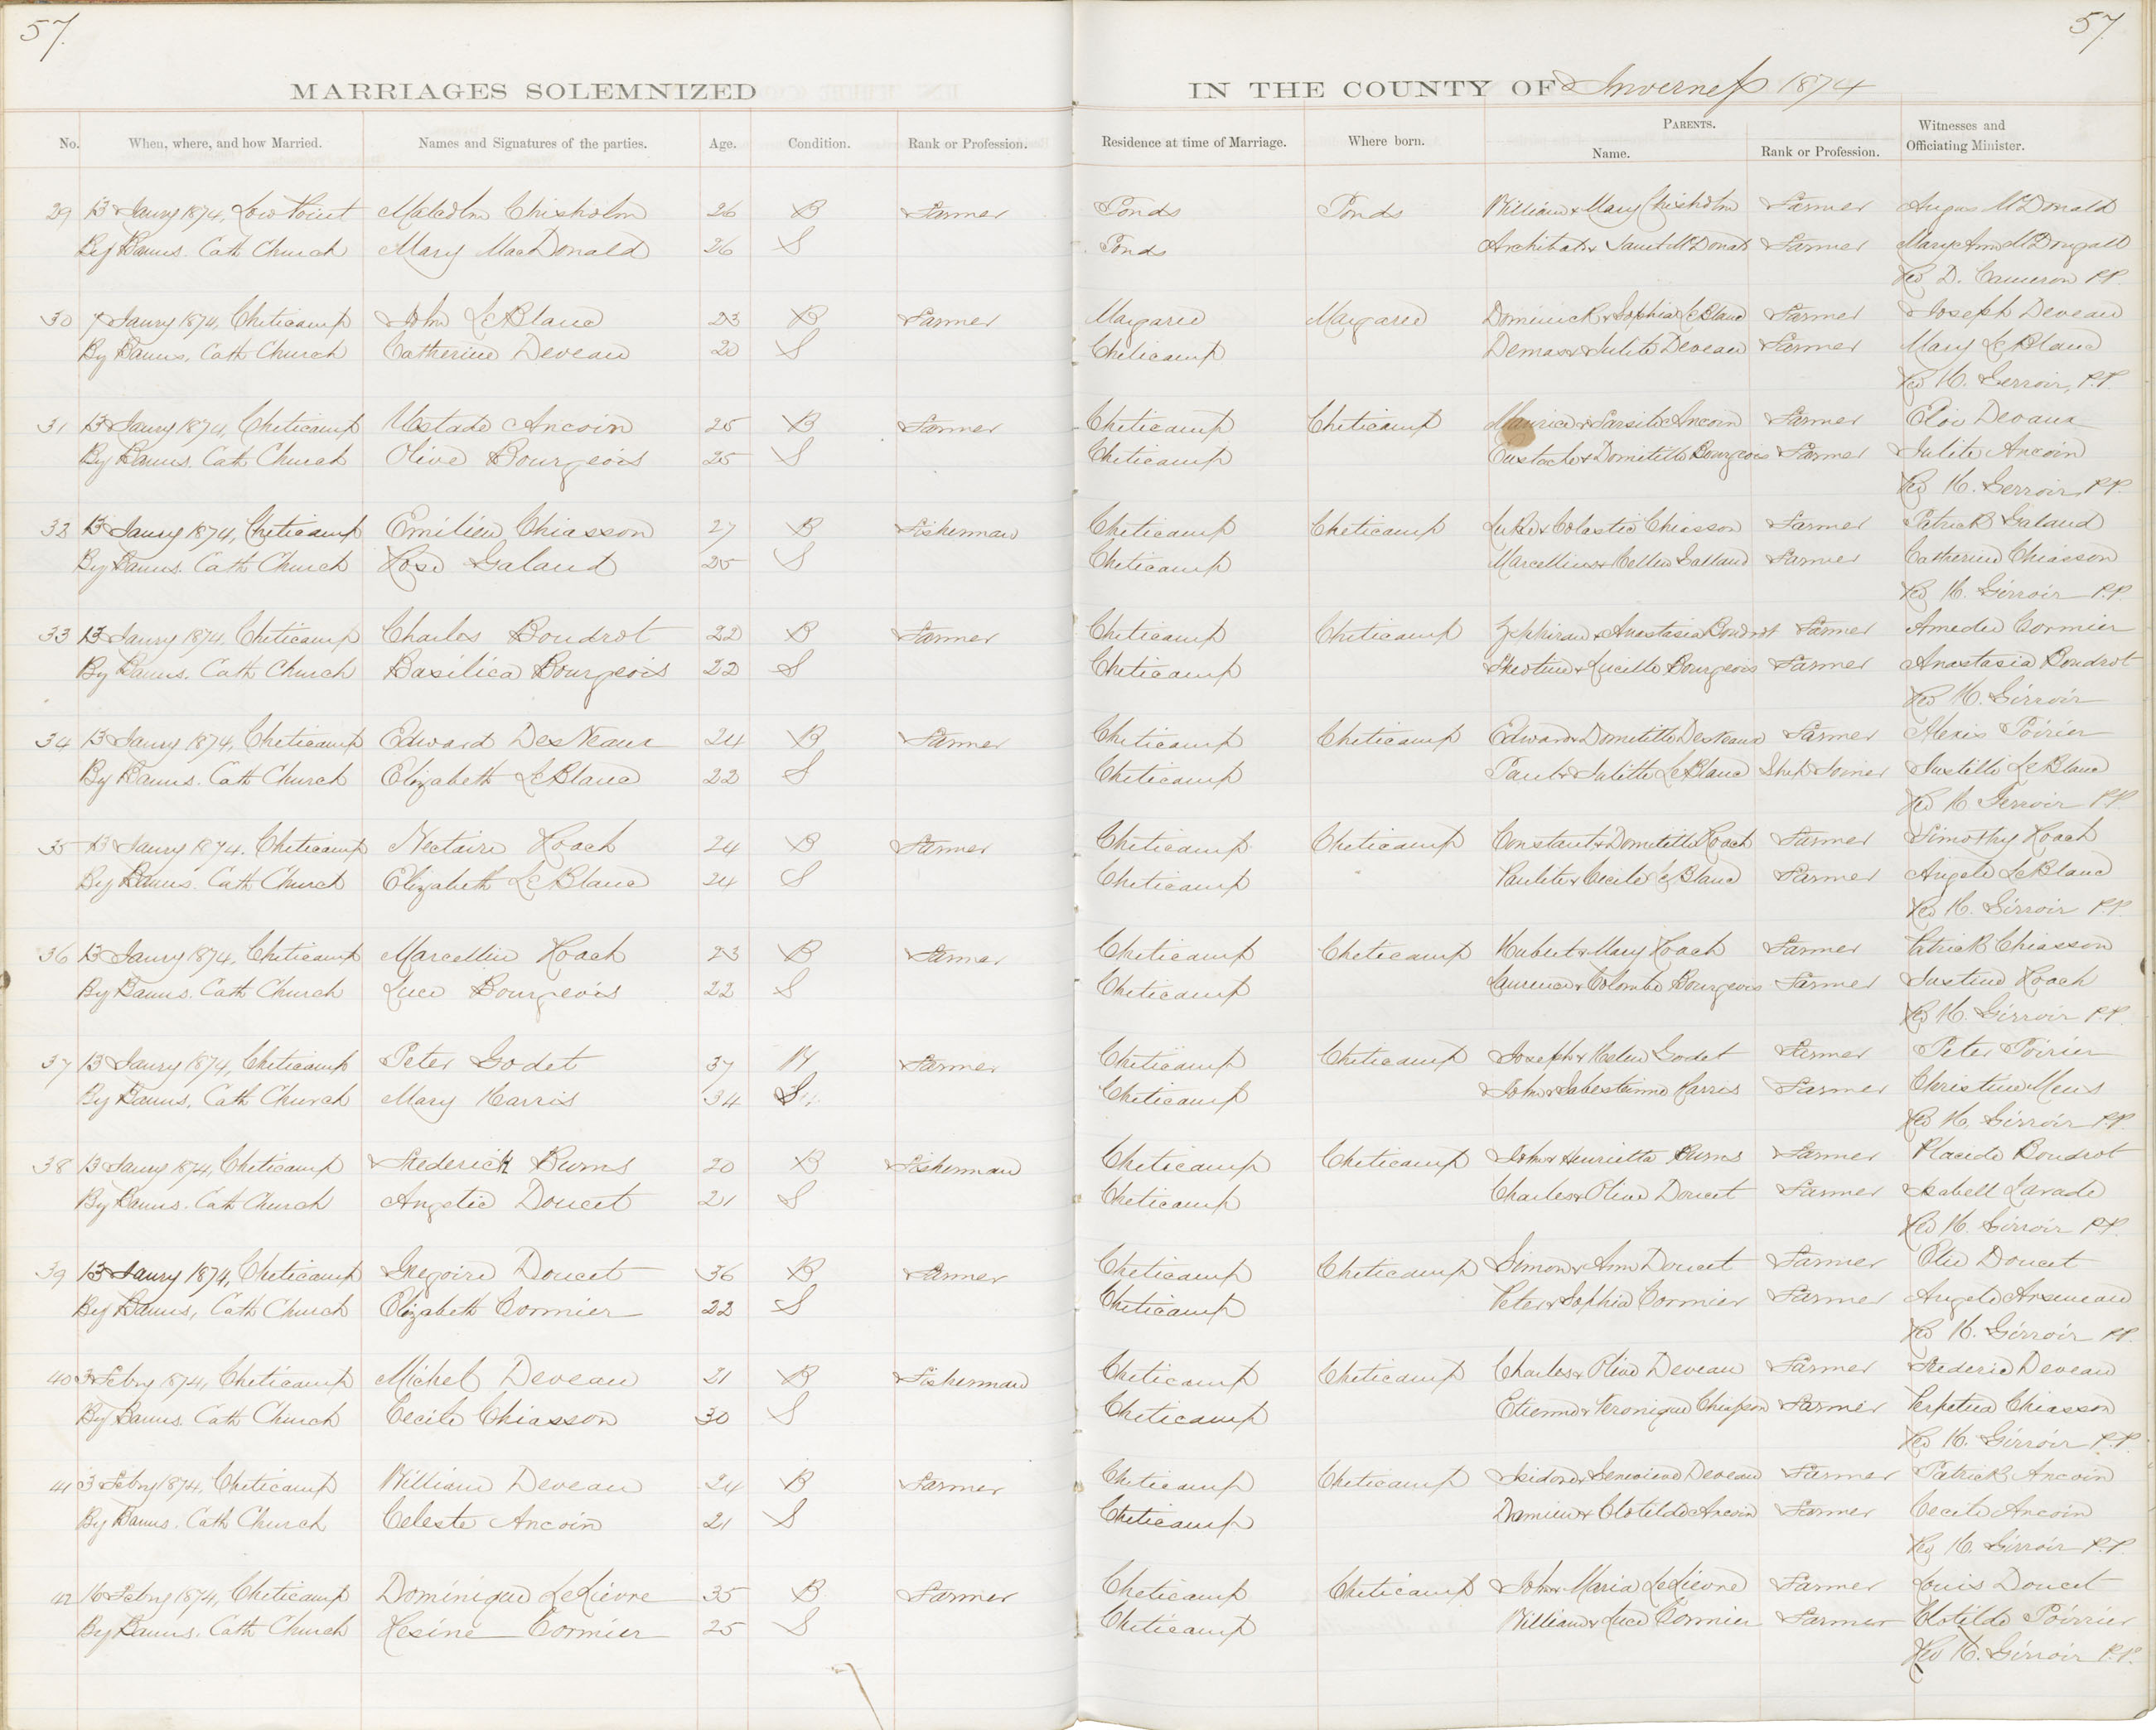 57.
57
MARRIAGES SOLEMNIZED IN THE COUNTY OF Inverness 1874
No. When, where, and how Married. Names and Signatures of the parties. Age. Condition. Rank or Profession. Residence at time of Marriage. Where born. PARENTS. Name. Rank or Profession. Witnesses and Officiating Minister.
29 13 Jaury 1874, Low Point Malcolm Chisholm 26 B Farmer Ponds Ponds William & Mary Chisholm Farmer Angus McDonald
By Banns. Cath Church Mary MacDonald 26 S Ponds Archibald & Janet McDonald Farmer Mary Ann McDougall
Rev D. Cameron P.P.
30 7 Jaury 1874, Cheticamp John LeBlanc 23 B Farmer Margaree Margaree Dominick & Sophia LeBlanc Farmer Joseph Deveau
By Banns. Cath Church Catherine Deveau 20 S Cheticamp Demas & Julite Deveau Farmer Mary LeBlanc
Rev H. Gerroir, P.P.
31 13 Jaury 1874, Cheticamp Ustade Ancoin 25 B Farmer Cheticamp Cheticamp Maurice & Tarsile Ancoin Farmer Eloi Devaux
By Banns. Cath Church Olive Bourgeois 25 S Cheticamp Eustache & Domitille Bourgeois Farmer Julite Ancoin
Rev H. Gerroir, P.P.
32 13 Jaury 1874, Cheticamp Emilien Chiasson 27 B Fisherman Cheticamp Cheticamp Luke & Colastie Chiasson Farmer Patrick Galand
By Banns. Cath Church Rose Galand 25 S Cheticamp Marcellin & Hellen Galland Farmer Catherine Chiasson
Rev H. Girroir P.P.
33 13 Jaury 1874, Cheticamp Charles Boudrot 22 B Farmer Cheticamp Cheticamp Zephiran & Anastasia Boudrot Farmer Amedie Cormier
By Banns. Cath Church Basilica Bourgeois 22 S Cheticamp & Lucille Bourgeois Farmer Anastasia Boudrot
Rev H. Girroir
34 13 Jaury 1874, Cheticamp Edward DesVeaux 24 B Farmer Cheticamp Cheticamp Edward & Domitille DesVeaux Farmer Alexis Poirier
By Banns. Cath Church Elizabeth LeBlanc 22 S Cheticamp Paul & Julitte LeBlanc Ship Joiner Justille LeBlanc
Rev H. Gerroir P.P.
35 13 Jaury 1874. Cheticamp Nectaire Roach 24 B Farmer Cheticamp Cheticamp Constant & Domitille Roach Farmer Timothy Roach
By Banns. Cath Church Elizabeth LeBlanc 24 S Cheticamp Paulite & Cecile LeBlanc Farmer Angele LeBlanc
Rev H. Girroir P.P.
36 13 Jaury 1874, Cheticamp Marcellin Roach 23 B Farmer Cheticamp Cheticamp Hubert & Mary Roach Farmer Patrick Chiasson
By Banns. Cath Church Luce Bourgeois 22 S Cheticamp Laurence & Colombe Bourgeois Farmer Justine Roach
Rev H. Girroir P.P.
37 13 Jaury 1874, Cheticamp Peter Godet 37 W Farmer Cheticamp Cheticamp Joseph & Helen Godet Farmer Peter Poirier
By Banns, Cath Church Mary Harris 34 S Cheticamp John & Harris Farmer Christine
Rev H. Girroir P.P.
38 13 Jaury 1874, Cheticamp Frederick Burns 20 B Fisherman Cheticamp Cheticamp John & Henrietta Burns Farmer Placide Boudrot
By Banns. Cath Church Angelic Doucet 21 S Cheticamp Charles & Olive Doucet Farmer Isabell Lavade
Rev H. Girroir P.P.
39 13 Jaury 1874, Cheticamp Gregoire Doucet 36 B Farmer Cheticamp Cheticamp Simon & Ann Doucet Farmer Elie Doucet
By Banns, Cath Church Elizabeth Cormier 22 S Cheticamp Peter & Sophia Cormier Farmer Angele Arseneau
Rev H. Girroir P.P.
40 3 Febry 1874, Cheticamp Michel Deveau 21 B Fisherman Cheticamp Cheticamp Charles & Olive Deveau Farmer Frederic Deveau
By Banns. Cath Church Cecile Chiasson 30 S Cheticamp Etienne & Veronique Chiasson Farmer Perpetua Chiasson
Rev H. Girroir P.P.
41 3 Febry 1874, Cheticamp William Deveau 24 B Farmer Cheticamp Cheticamp Isidore & Genevieve Deveau Farmer Patrick Ancoin
By Banns. Cath Church Celeste Ancoin 21 S Cheticamp Damien & Clotilde Ancoin Farmer Cecile Ancoin
Rev H. Girroir P.P.
42 16 Febry 1874, Cheticamp Dominique LeLievre 35 B Farmer Cheticamp Cheticamp John & Maria LeLievre Farmer Louis Doucet
By Banns. Cath Church Resine Cormier 25 S Cheticamp William & Luce Cormier Farmer Clotilde Poirrier
Rev H. Girroir P.P.